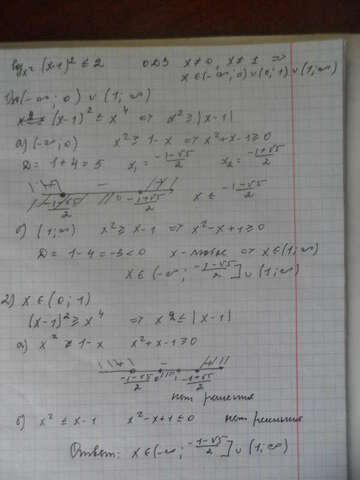 log x² (x-1)² ≤ 2   ОДЗ x ≠ 0, x ≠ 1 ⇒
x ∈ (-∞; 0) ∪ (0; 1) ∪ (1; ∞)
(-∞; 0) ∪ (1; ∞)
(x-1)² ≤ x⁴ ⇒ x² ≥ |x-1|
а) (-∞; 0)   x² ≥ 1-x ⇒ x²+x-1≥0
D = 1+4 = 5   x₁ = (-1-√5)/2   x₂ = (-1+√5)/2
(-1-√5)/2   (-1+√5)/2   x ≤ (-1-√5)/2
б) (1; ∞)   x² ≥ x-1 ⇒ x²-x+1≥0
D = 1-4 = -3<0   x - любое ⇒ x∈(1; ∞)
x ∈ (-∞; (-1-√5)/2] ∪ (1; ∞)
2) x ∈ (0; 1)
(x-1)² ≥ x⁴ ⇒ x² ≤ |x-1|
а) x² ≥ 1-x   x²+x-1≥0
(-1-√5)/2   (-1+√5)/2
нет решения
б) x² ≤ x-1   x²-x+1≤0   нет решения
Ответ: x ∈ (-∞; (-1-√5)/2] ∪ (1; ∞)